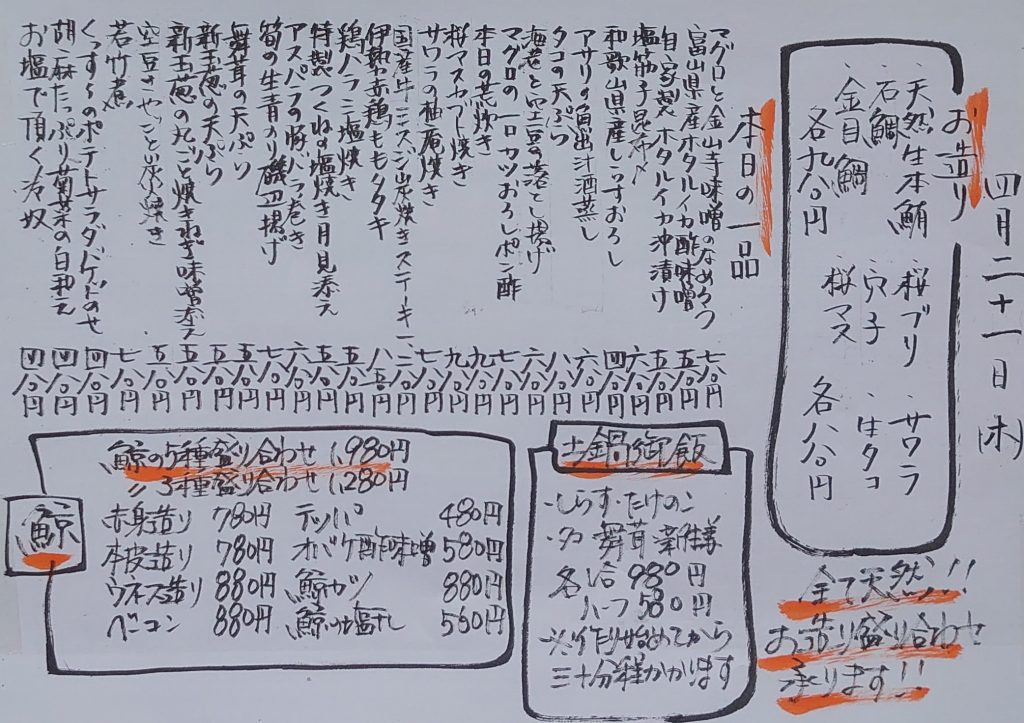 四月二十一日(木)
お造り
・天然生本鮪 ・桜ブリ ・サワラ
・石鯛 ・穴子 ・生タコ
・金目鯛 ・桜マス
各九八〇円 各八八〇円
全て天然!!
お造り盛り合わせ
承ります!!
本日の一品
マグロと金山寺味噌のなめろう 七八〇円
富山県産ホタルイカ酢味噌 五八〇円
自家製ホタルイカ沖漬け 五八〇円
塩筋子昆布〆 六八〇円
和歌山県産しらすおろし 四八〇円
アサリの魚出汁酒蒸し 六八〇円
タコの天ぷら 八八〇円
海老と空豆の落とし揚げ 六八〇円
マグロの一口カツおろしポン酢 七八〇円
本日の荒炊き 九八〇円
桜マスカブト焼き 九八〇円
サワラの柚庵焼き 七八〇円
国産牛ミスジ炭焼きステーキ 一、二八〇円
伊勢赤鶏ももタタキ
鶏ハラミ塩焼き 五八〇円
特製つくねの塩焼き月見添え 五八〇円
アスパラの豚バラ巻き 六八〇円
筍の生青のり磯辺揚げ 七八〇円
舞茸の天ぷら 五八〇円
新玉葱の天ぷら 五八〇円
新玉葱の丸ごと焼きねぎ味噌添え 五八〇円
空豆さやごと炭焼き 五八〇円
若竹煮 七八〇円
くっすーのポテトサラダバゲットのせ 四八〇円
胡麻たっぷり菊菜の白和え 四八〇円
お塩で頂く冷奴 四八〇円
土鍋御飯
・しらす・たけのこ
・タコ・舞茸新生姜
各1合 980円
ハーフ 580円
※作り始めてから
三十分程かかります
鯨
鯨の5種盛り合わせ 1,980円
〃 3種盛り合わせ 1,280円
赤身造り 780円 テッパ 480円
本皮造り 780円 オバケ酢味噌 580円
ウネス造り 880円 鯨カツ 880円
ベーコン 880円 鯨の塩干し 560円